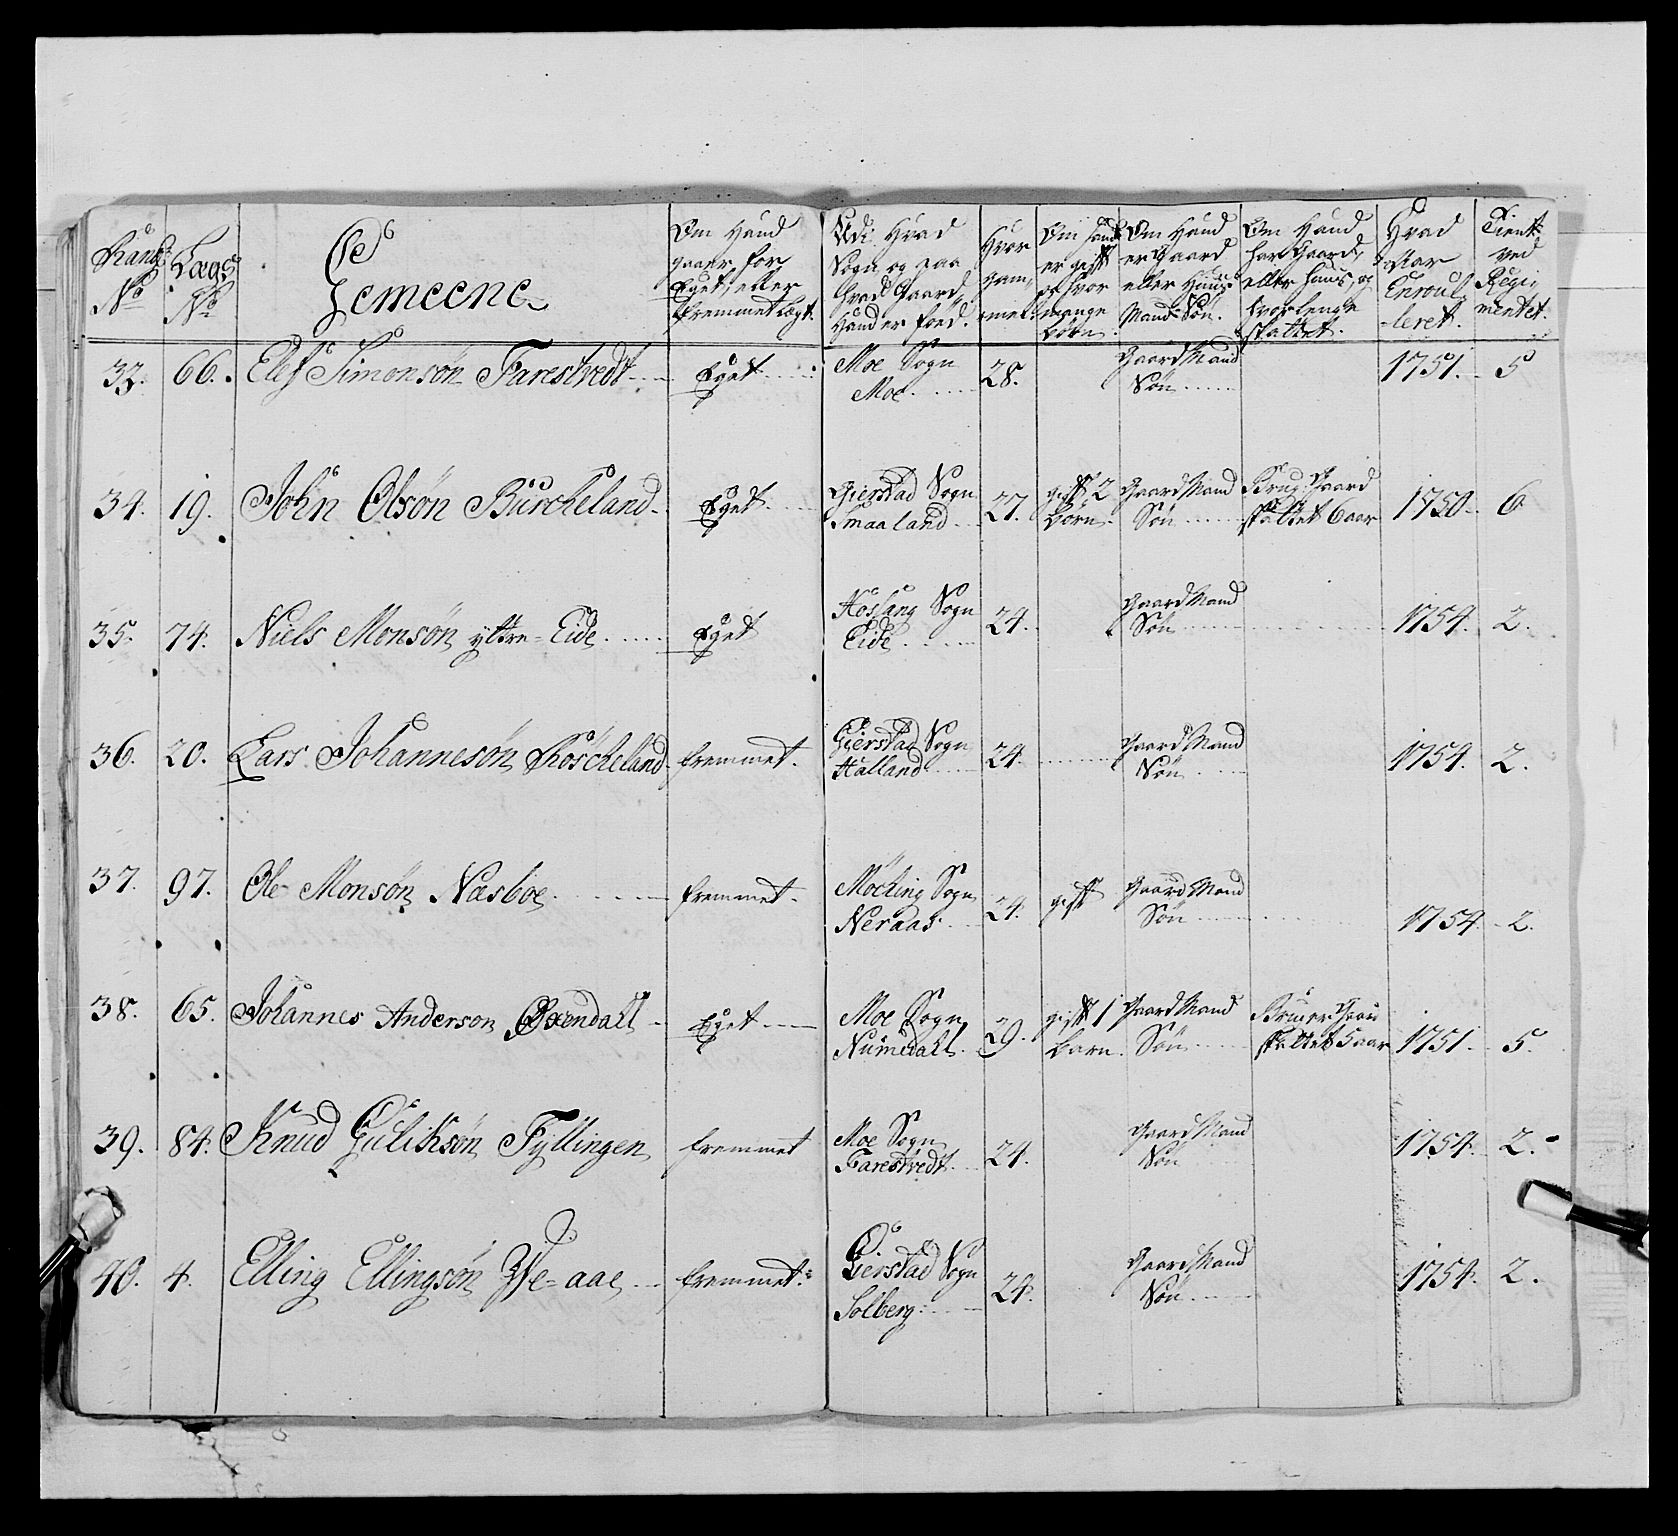 Rang N° | Lægs N° | De Gemeene | Om Hand gaaer for Eget, eller fremmet Lægt. | Udi Hvad Sogn og paa Hvad Gaard Hand er föed. | Hvor gam, mel | Om Hand er gift og hvor mange börn | Om Hand er Gaard eller Huus Mands Sön. | Om Hand har Gaard, eller Huus, og hvor lenge skattet. | Hvad Aar Enroul, leret. | Tient ved Regi, mentet.
33. | 66. | Elef Simonsön Farestvedt | Eget | Moe Sogn Moe | 28. | | Gaard Mand Sön | | 1751. | 5
34. | 19. | John Olsön Burckeland | Eget | Gierstad Sogn Smaaland | 27. | gift 2 börn. | Gaard Mand Sön | Brug. Gaard skattet 6 aar | 1750. | 6
35. | 74. | Niels Monsön yttre-Eide | Eget | Hoslang Sogn Eide | 24. | | Gaard Mand Sön | | 1754. | 2.
36. | 20. | Lars Johannesön | fremmet. | Gierstad Sogn Halland | 24. | | Gaard Mand Sön | | 1754. | 2.
37. | 97. | Ole Monsön Næsboe | fremmet. | Sogn Neraas | 24. | gift | Gaard Mand Sön | | 1754. | 2.
38. | 65. | Johannes Anderson Oxendahl | Eget | Moe Sogn Numedahl | 29. | gift 1 barn. | Gaard Mand Sön | Gaard skattet 5 aar | 1751. | 5.
39. | 84. | Knud Guliksön Fyllingen | fremmet | Moe Sogn Farestvedt | 24. | | Gaard Mand Sön | | 1754. | 2.
40. | 4. | Elling Ellingsön | fremmet. | Gierstad Sogn Solberg | 24. | | Gaard Mand Sön | | 1754. | 2.